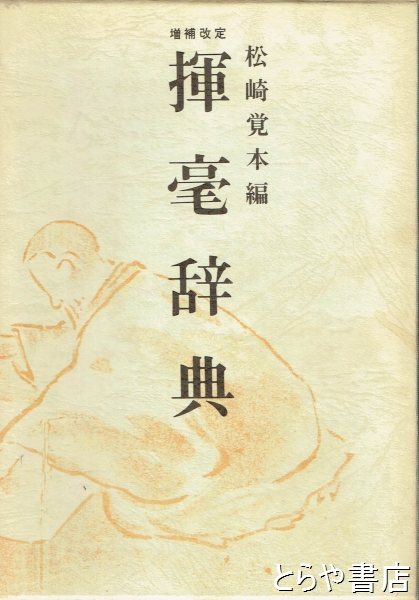 増補改定
揮毫辞典
松崎覚本編
とらや書店